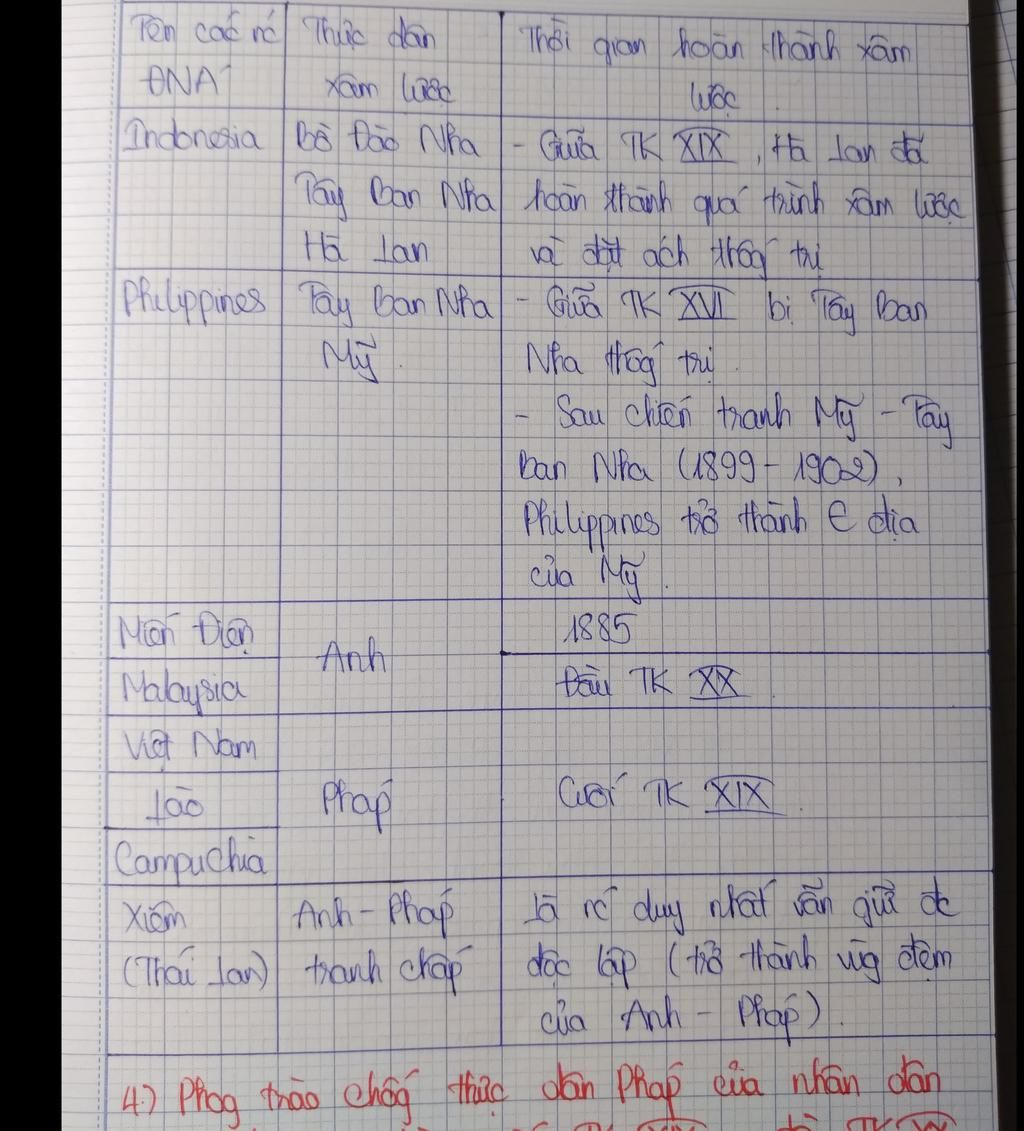 Tên các nc
ĐNA
Thực dân
xâm lược
Thời gian hoàn thành xâm
lược
Indonesia
Bồ Đào Nha
Tây Ban Nha
Hà Lan
- Giữa TK XIX, Hà Lan đã
hoàn thành quá trình xâm lược
và đặt ách thốg trị
Philippines
Tây Ban Nha
Mỹ.
- Giữa TK XVI bị Tây Ban
Nha thốg trị.
- Sau chiến tranh Mỹ - Tây
Ban Nha (1899 - 1902),
Philippines trở thành € địa
của Mỹ.
Miến Điện
Anh
1885
Malaysia
Đầu TK XX
Việt Nam
Lào
Pháp
Cuối TK XIX.
Campuchia
Xiêm
(Thái Lan)
Anh - Pháp
tranh chấp
Là nc duy nhất vẫn giữ đc
độc lập (trở thành vùg đệm
của Anh - Pháp).
4.) Phog trào chốg thực dân Pháp của nhân dân